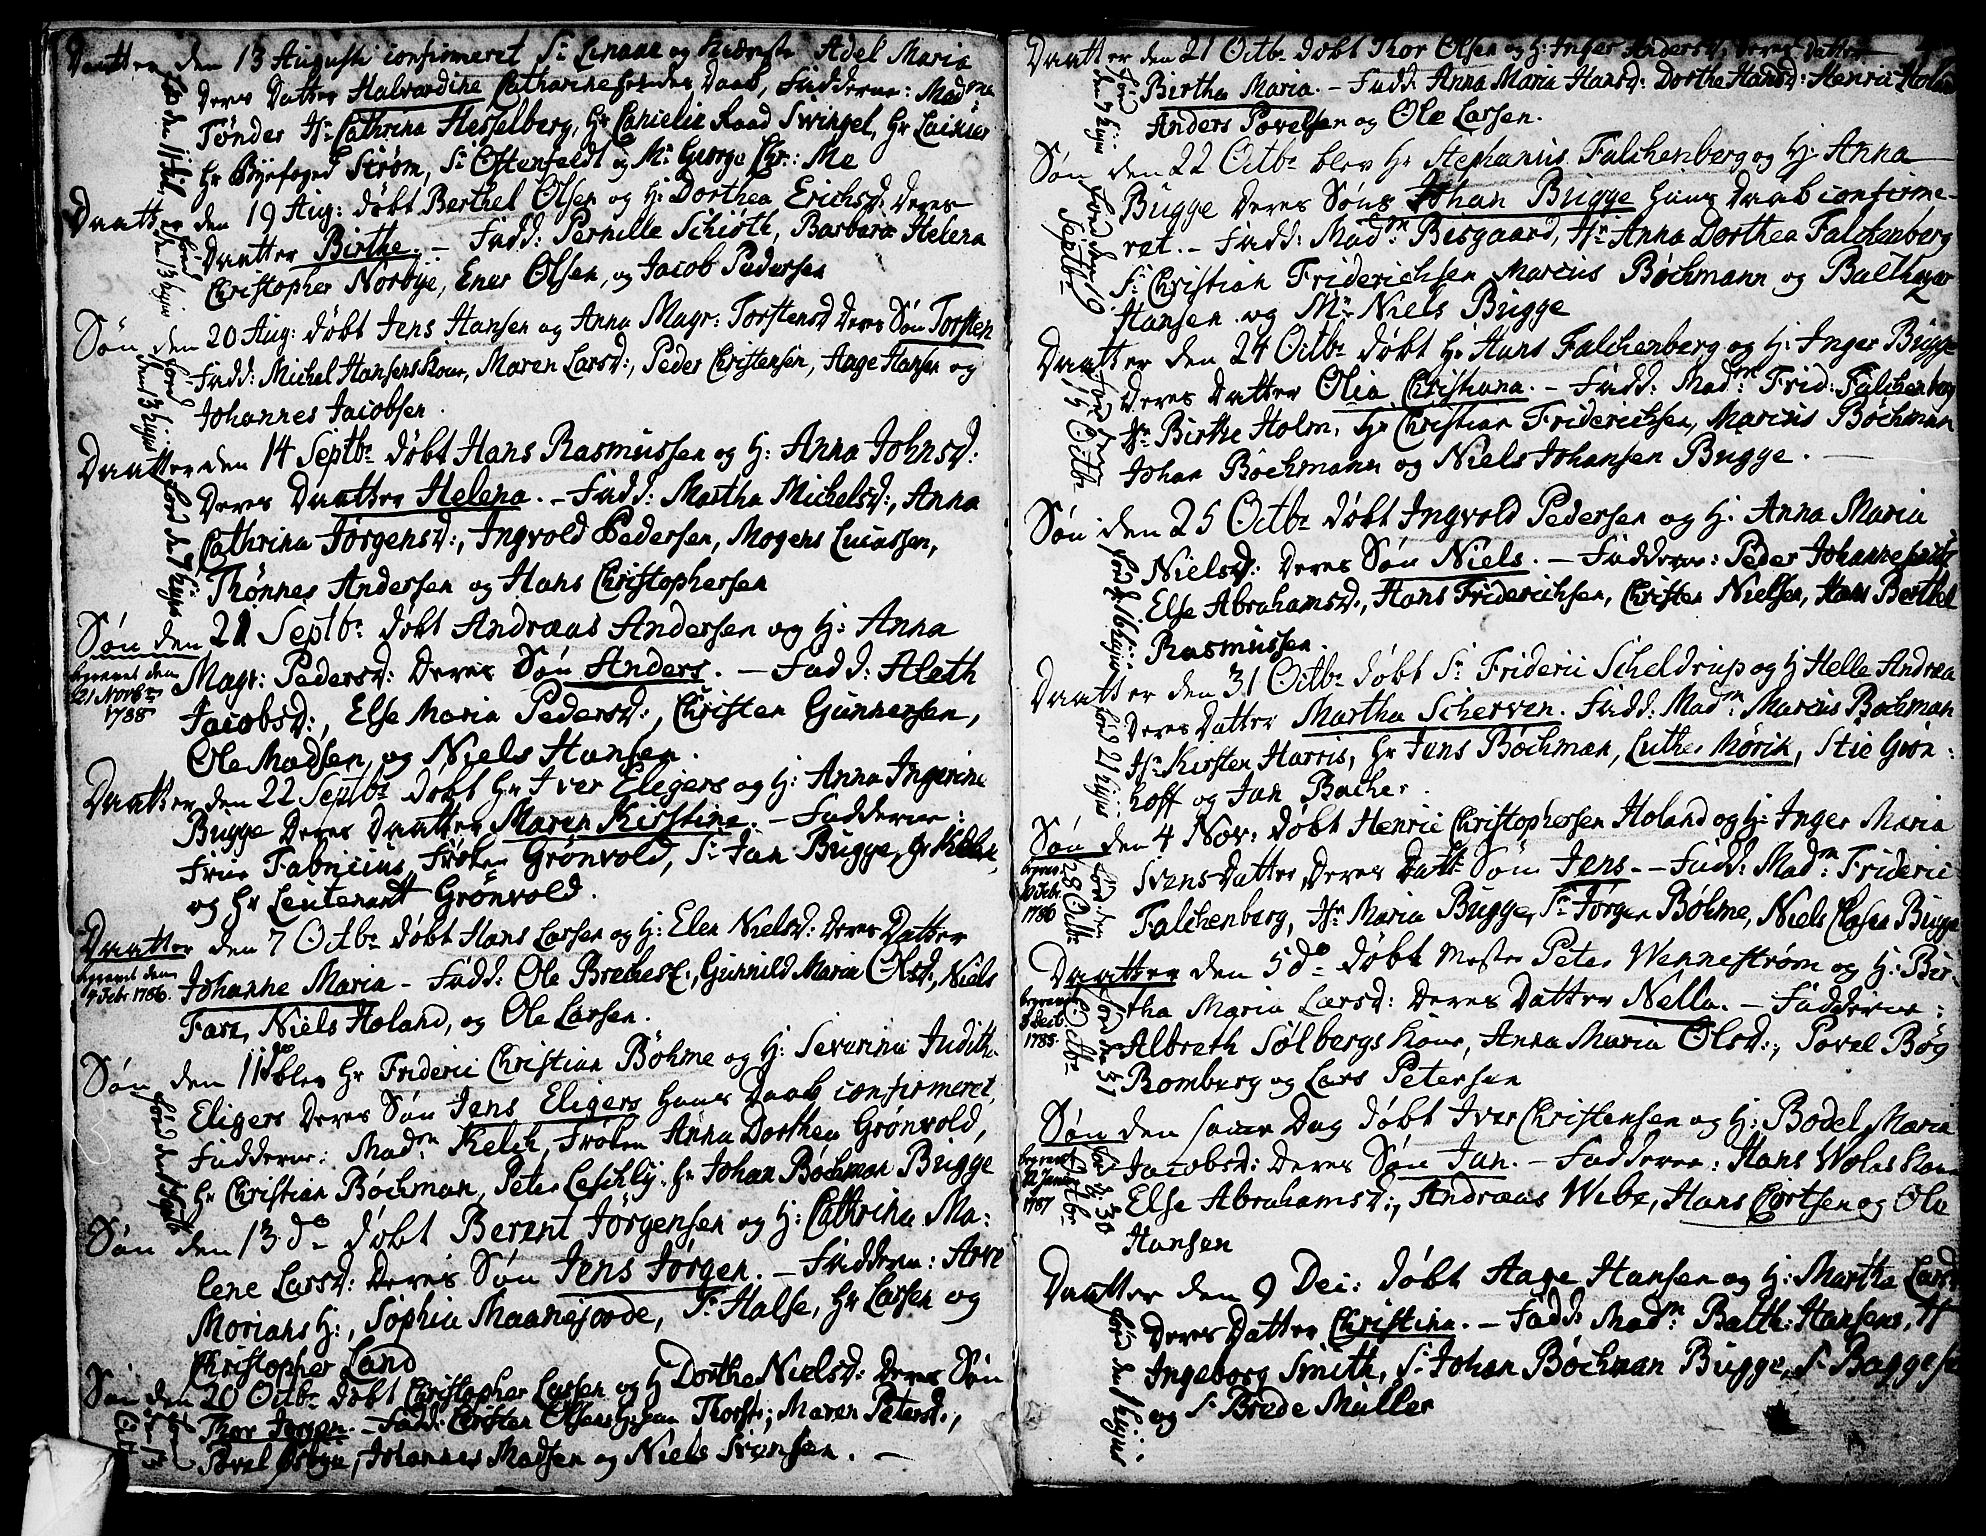 Daatter den 13 Augusti confirmeret Sr. Linaae og Kiæreste Adel Maria
Deres Datter Halvardine Catharine hendes Daab, Fadderne: Madme
Tønder Jfr. Cathrina Hesselberg, Hr Canielin Raad Swingel, Hr
Hr Byefoged Strøm, Sr. Ostenfeldt og Mr. George Chr: Me
fød den 11 Juli
Daatter den 19 Aug: døbt Berthel Olsen og H: Dorthea Erichsd: Deres
Daatter Birthe. – Fadd: Pernille Schiøth, Barbara Helena
Christopher Norbye, Ener Olsen, og Jacob Pedersen
fød den 13 hujus
Søn den 20 Aug: døbt Jens Hansen og Anna Magr: Torstensd Deres Søn Torsten
Fadd: Michel Hansens Kone, Maren Larsd:, Peder Christensen, Aage Hansen og
Johannes Jacobsen.
fød den 13 hujus
Daatter den 14 Septbr døbt Hans Rasmussen og H: Anna Johnsd:
Deres Daatter Helena. – Fadd: Martha Michelsd:, Anna
Cathrina Jørgensd:, Ingvold Pedersen, Mogens Lucassen,
Thønnes Andersen og Hans Christophersen
fød den 7 huj:
Søn den 21 Septbr døbt Andræas Andersen og H: Anna
Magr: Pedersd: Deres Søn Anders. – Fadd: Aleth
Jacobsd:, Else Maria Pedersd:, Christen Gunnersen,
Ole Madsen, og Niels Hansen.
begravet den
21 Novbr
1785
Daatter den 22 Septbr døbt Hr Iver Eligers og H: Anna Ingerine
Bugge Deres Daatter Maren Kirstine. – Fadderne:
Frue Fabricius, Frøken Grønvold, Sr. Jan Bugge,
og Hr Leutenant Grønvold.
Daatter den 7 Octbr døbt Hans Larsen og H: Elen Nielsd: Deres Datter
Johanne Maria – Fadd: Ole, Gunnild Maria Olsd:, Niels
Niels Holand, og Ole Larsen.
begravet den
Febr. 1786.
Søn den 11 do blev Hr Frideric Christian Böhme og H: Severina Juditha
Eligers Deres Søn Jens Eligers hans Daab confirmeret,
Fadderne: Madm Kelch, Frøken Anna Dorthea Grønvold,
Hr Christian Bøchman, Peter Leschly: Hr Johan Bøchman Bugge
Søn den 13 do døbt Berent Jørgensen og H: Cathrina Ma:
lene Larsd: Deres Søn Jens Jørgen. – Fadderne: Arve
Morians H:, Sophia Maanesorde, Sr. Halse, Hr Larsen og
Christopher Land
Søn den 20 Octbr døbt Christopher Larsen og H Dorthe Nielsd: Deres Søn
Thor Jørgen – Fadd: Carsten Olsens H:, Maren Petersd:,
Povel Østbye, Johannes Madsen og Niels Svensen. –
Daatter den 21 Octbr døbt Thor Olsen og H: Inger Andersd: Deres Datter
Birtha Maria. – Fadd: Anna Maria Hansd: Dorthe Hansd: Henric Holan
Anders Povelsen og Ole Larsen.
fød den 7 hujus
Søn den 22 Octbr blev Hr Stephanus Falchenberg og H: Anna
Bugge Deres Søns Johan Bugge hans Daab confirme-
ret. – Fadd: Madm: Bisgaard, Jfr Anna Dorthea Falchenberg
Sr. Christian Friderichsen Marcus Bøchmann og Balthazar
Hansen og Mr Niels Bugge
fød den 19
Septbr
Daatter den 24 Octbr døbt Hr Hans Falchenberg og H: Inger Bugge
Deres Datter Olia Christiana. – Fadd: Madm: Frid: Falchenberg
Jfr Birthe Holm, Hr Christian Friderichsen, Marcus Bøchman
Johan Bøchmann og Niels Johansen Bugge. –
fød den
15 Octbr
Søn den 25 Octbr døbt Ingvold Pedersen og H: Anna Maria
Nielsd: Deres Søn Niels. – Fadderne: Peder Johannesens
Else Abrahamsd:, Hans Friderichsen, Christen Nielsen, Hans Berthel
Rasmussen.
fød d. 16 hujus
Daatter den 31 Octbr døbt Sr. Frideric Scheldrup og H Helle Andrea
Deres Datter Martha Scherven. Fadd: Madm: Marcus Bøchman
Jfr Kirsten Harris, Hr Jens Bøchman, Luther Mørch, Stie Grøn:
hoff og Jan Bacher.
fød 21 hujus
Søn den 4 Nov: døbt Henric Christophersen Holand og H: Inger Maria
Svens Datter, Deres Datt. Søn Jens. – Fadd: Madm: Frideric
Falchenberg, Jfr Maria Bugge, Sr Jørgen Bøhme, Niels Clasen Bugge
begrav.
10 Febr.
1786
fød den
28 Octbr
Daatter den 5 do døbt Mester Peter Wennestrøm og H: Bir-
tha Maria Larsd: Deres Datter Nella. – Fadderne:
Albreth Sølbergs Kone, Anna Maria Olsd:, Povel Bøg
Romborg og Lars Petersen
begravet
Decb.
1785.
fød den 31
Octbr
Søn den same Dag døbt Iver Christensen og H: Bodel Maria
Jacobsd: Deres Søn Jan. – Fadderne: Hans Wolas Kone
Else Abrahamsd:, Andræas Wibe, Hans Cortsen og Ole
Hansen
begravet
12 Janu
1787
fød d. 30
Octbr
Daatter den 9 Dec: døbt Aage Hansen og H: Martha Larsd
Deres Datter Christina. – Fadd: Madm: Balth: Hansens, Jfr
Ingeborg Smith, Sr. Johan Bøchman Bugge, Sr.
og Sr. Brede Müller
fød den 1 hujus